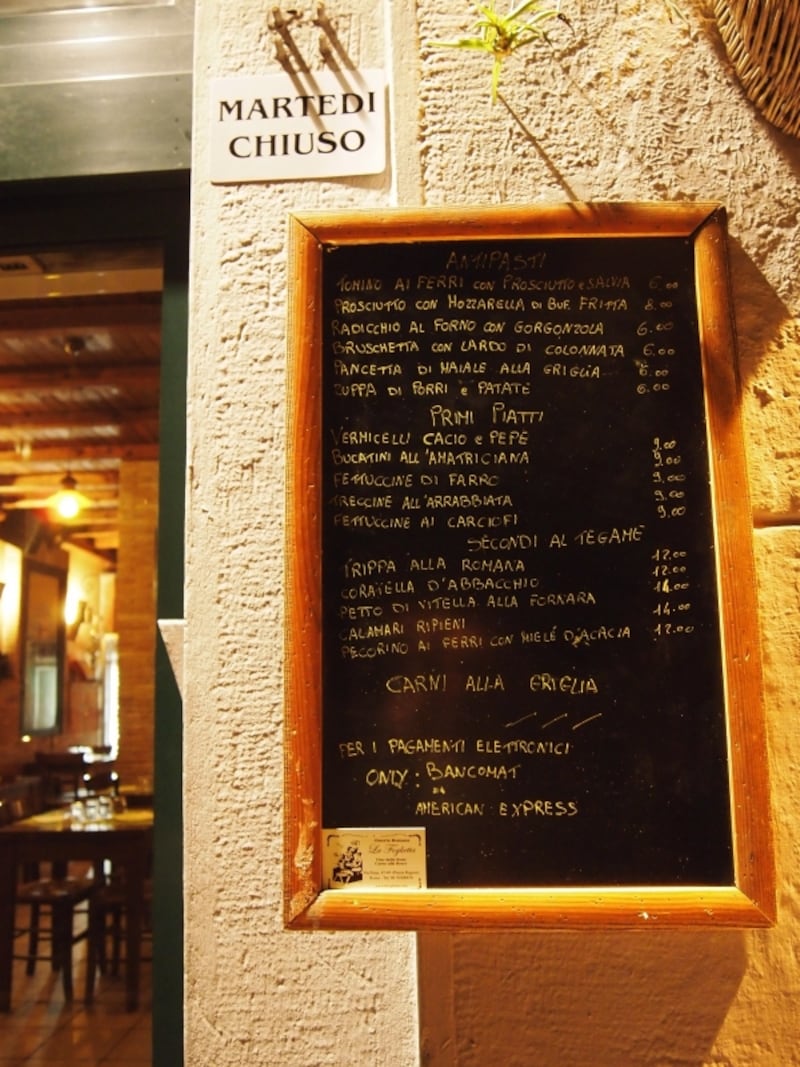 MARTEDI
CHIUSO
ANTIPASTI
TOMINO AI FERRI CON PROSCIUTTO e SALVIA 6.00
PROSCIUTTO CON MOZZARELLA DI BUF. FRITTA 8.00
RADICCHIO AL FORNO CON GORGONZOLA 6.00
BRUSCHETTA CON LARDO DI COLONNATA 6.00
PANCETTA DI MAIALE ALLA GRIGLIA 6.00
ZUPPA DI PORRI e PATATE 6.00
PRIMI PIATTI
VERMICELLI CACIO e PEPE 9.00
BUCATINI ALL'AMATRICIANA 9.00
FETTUCCINE DI FARRO 9.00
TRECCINE ALL'ARRABBIATA 9.00
FETTUCCINE AI CARCIOFI 9.00
SECONDI AL TEGAME
TRIPPA ALLA ROMANA 12.00
CORATELLA D'ABBACCHIO 12.00
PETTO DI VITELLA ALLA FORNARA 14.00
CALAMARI RIPIENI 14.00
PECORINO AI FERRI CON MIELE D'ACACIA 12.00
CARNI ALLA GRIGLIA
PER I PAGAMENTI ELETTRONICI
ONLY: BANCOMAT
AMERICAN EXPRESS
La Foglietta